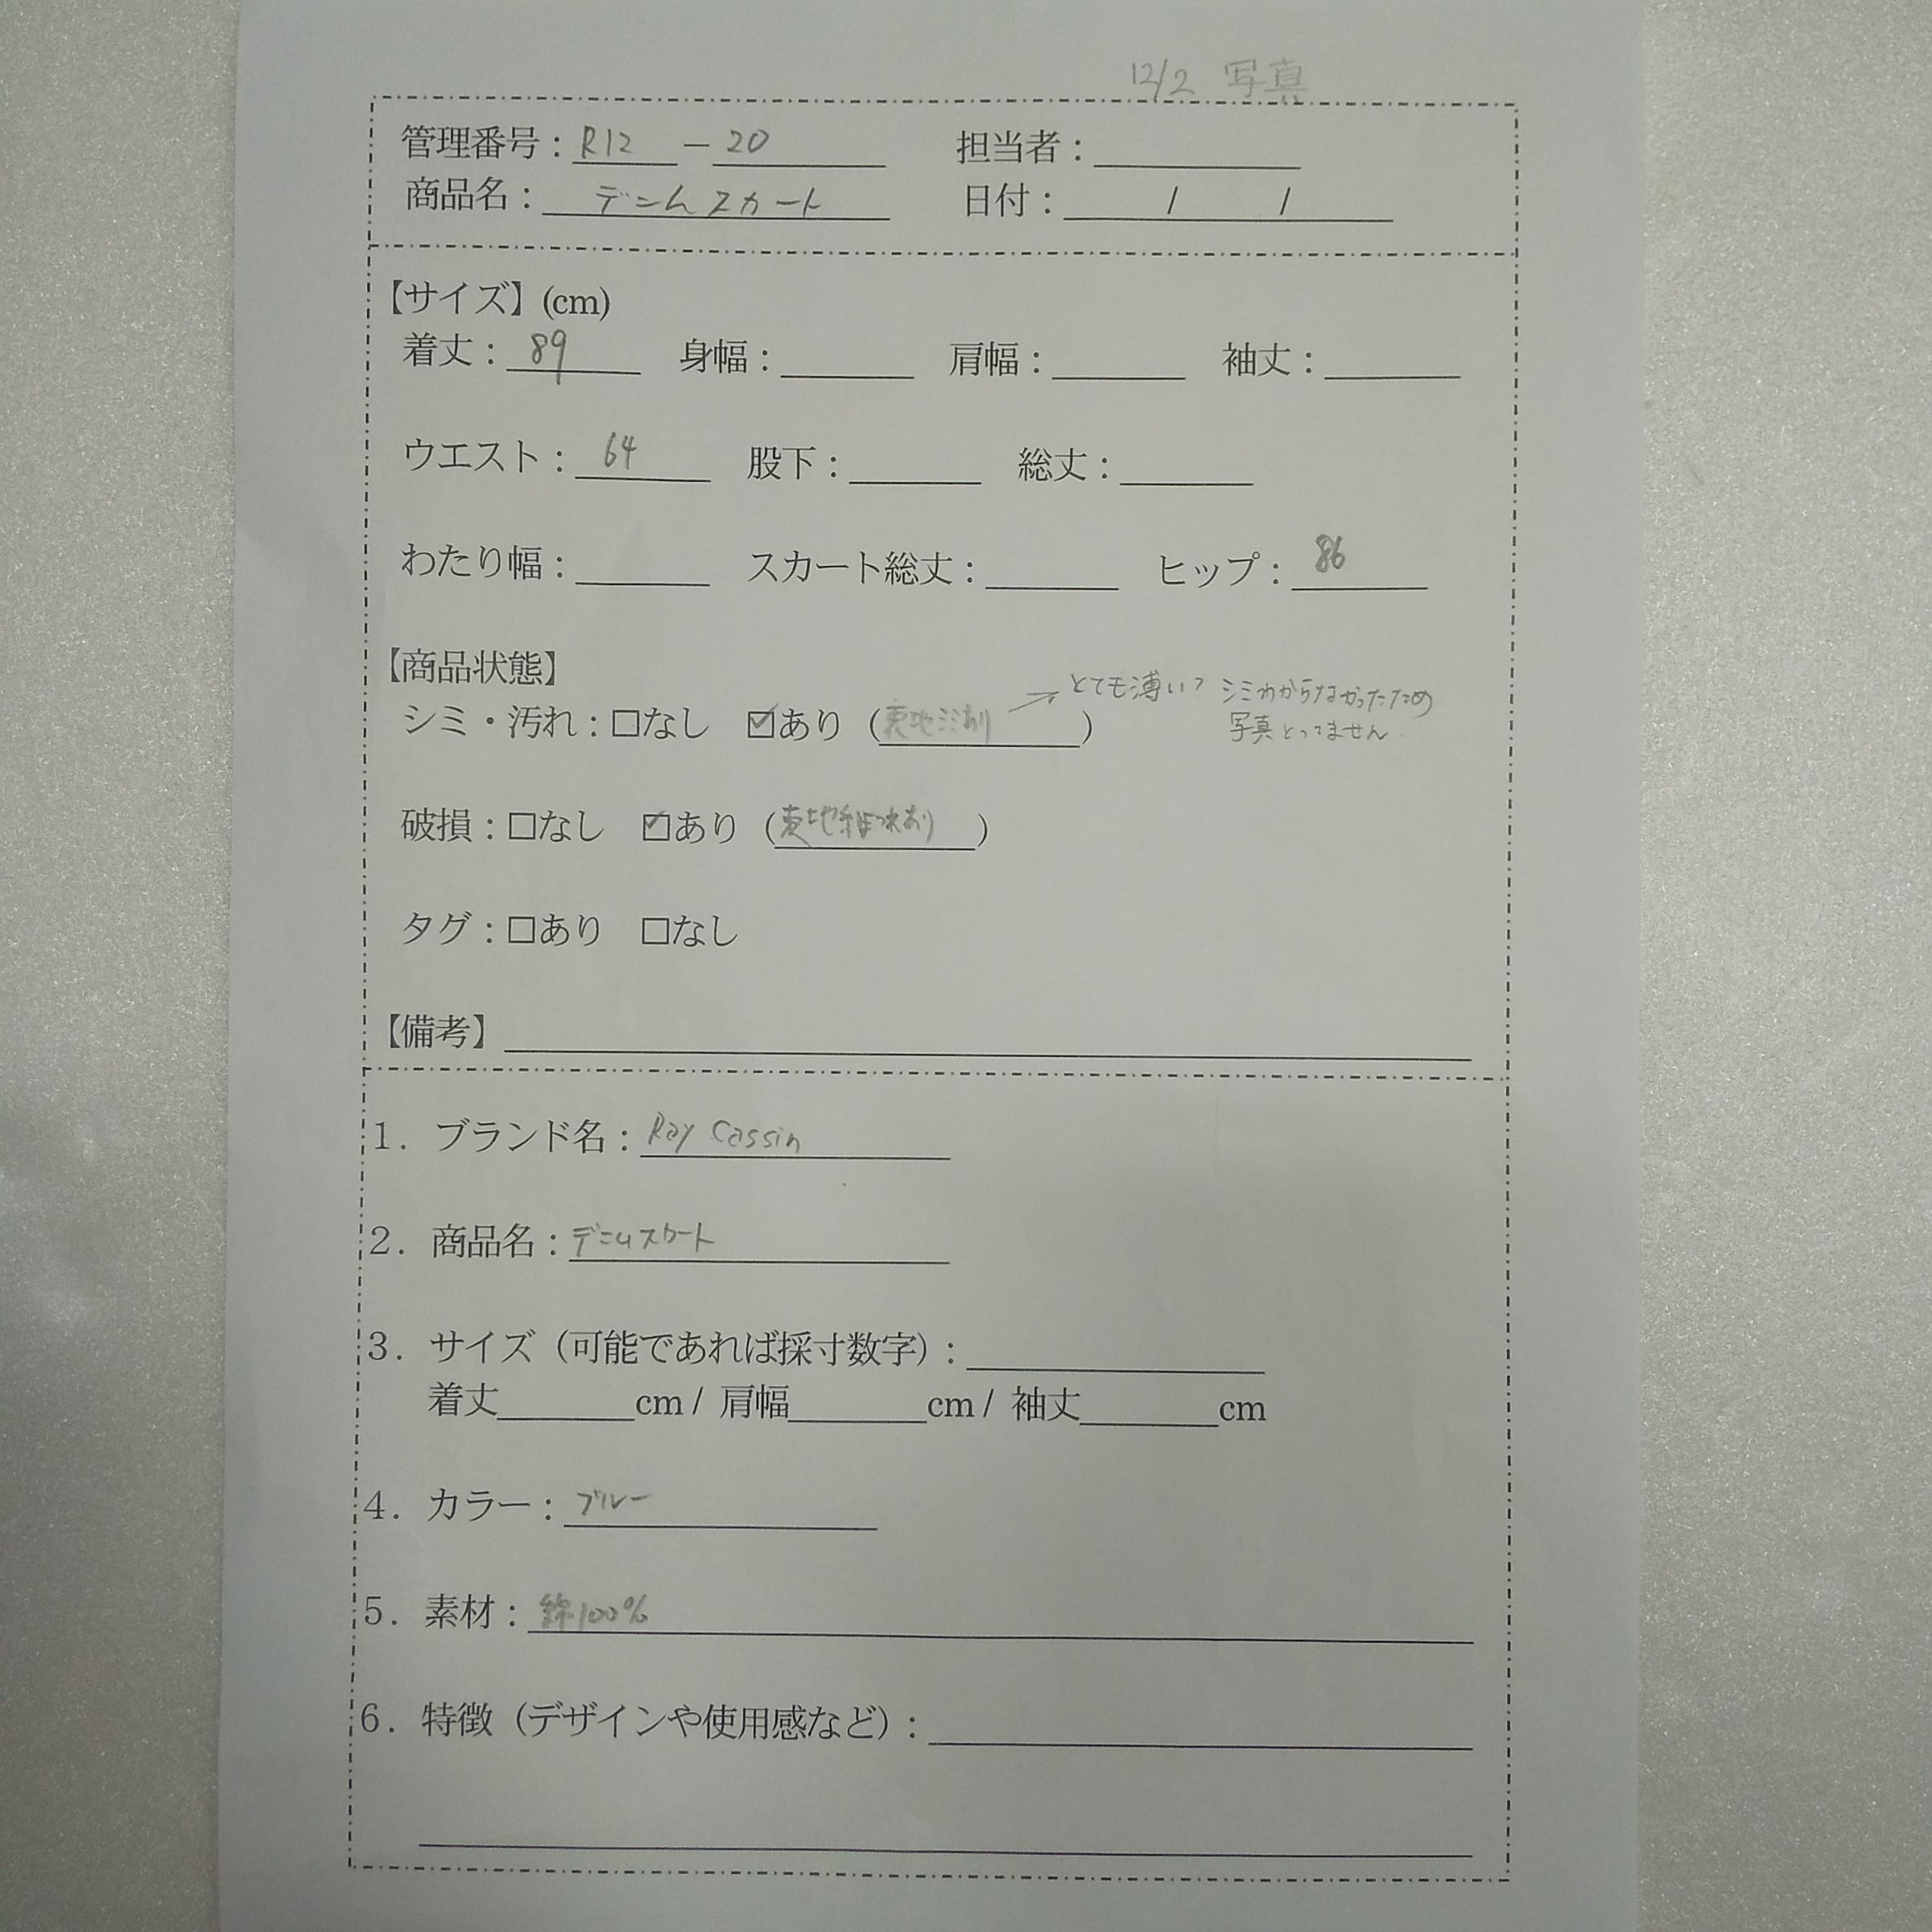 12/2 写真
管理番号：R12 － 20 担当者：
商品名：デニムスカート 日付： / /
【サイズ】(cm)
着丈：89 身幅： 肩幅： 袖丈：
ウエスト：64 股下： 総丈：
わたり幅： スカート総丈： ヒップ：86
【商品状態】
→とても薄い？ シミわからなかったため
シミ・汚れ：□なし ☑あり（裏地シミあり）
写真とってません
破損：□なし ☑あり（裏地ほつれあり）
タグ：□あり □なし
【備考】
1．ブランド名：Ray Cassin
2．商品名：デニムスカート
3．サイズ（可能であれば採寸数字）：
着丈 cm / 肩幅 cm / 袖丈 cm
4．カラー：ブルー
5．素材：綿100%
6．特徴（デザインや使用感など）：